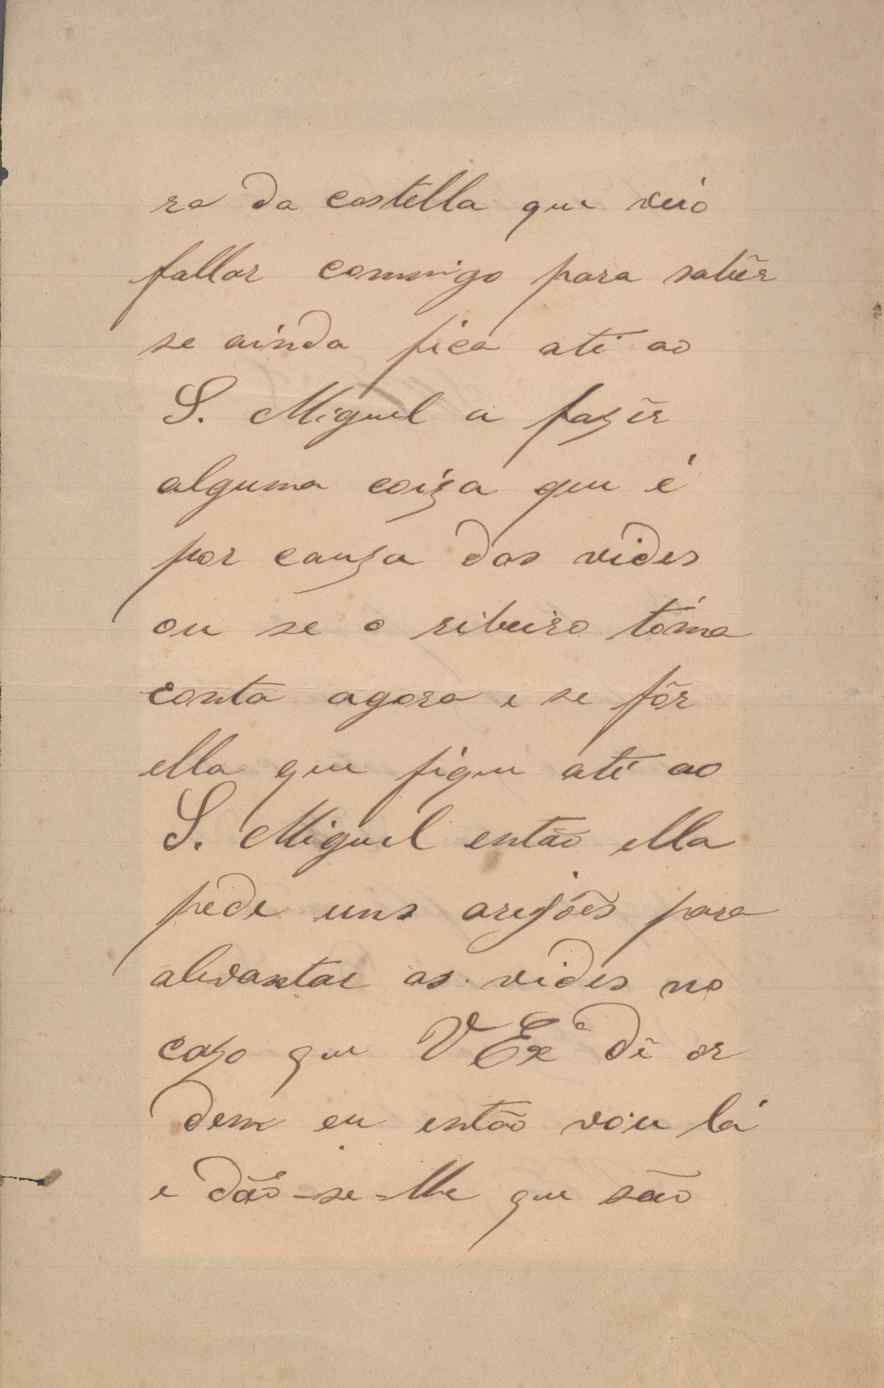 ra da castella que veió
fallar commigo para sabêr
se ainda fica até ao
S. Miguel a fazêr
alguma coiza que é
por cauza das vides
ou se o ribeiro tóma
conta agora e se fôr
ella que fique até ao
S. Miguel então ella
pede uns arejões para
alevantar as vides no
cazo que VExª dê or
dem eu então vou lá
e dão-se-lhe que são